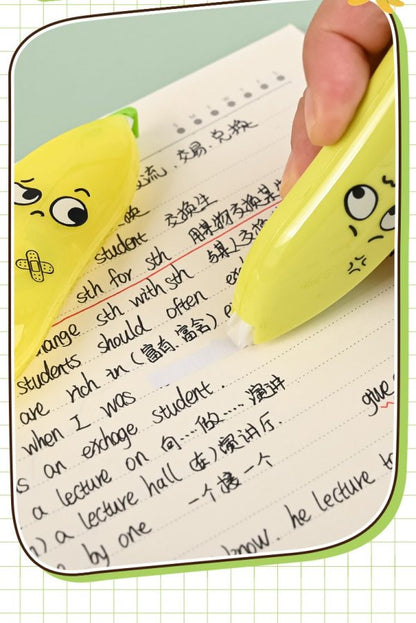 交流、交易、兑换
换
student 交换生
sth for sth 用某物交换某物
change sth with sth 与某人交换
students should often ex
are rich in (富有,富含) e
when I was
s an exchage student.
a lecture on 向…做……演讲
) a lecture hall (在)演讲厅.
by one 一个接一个
know. he lecture t
give